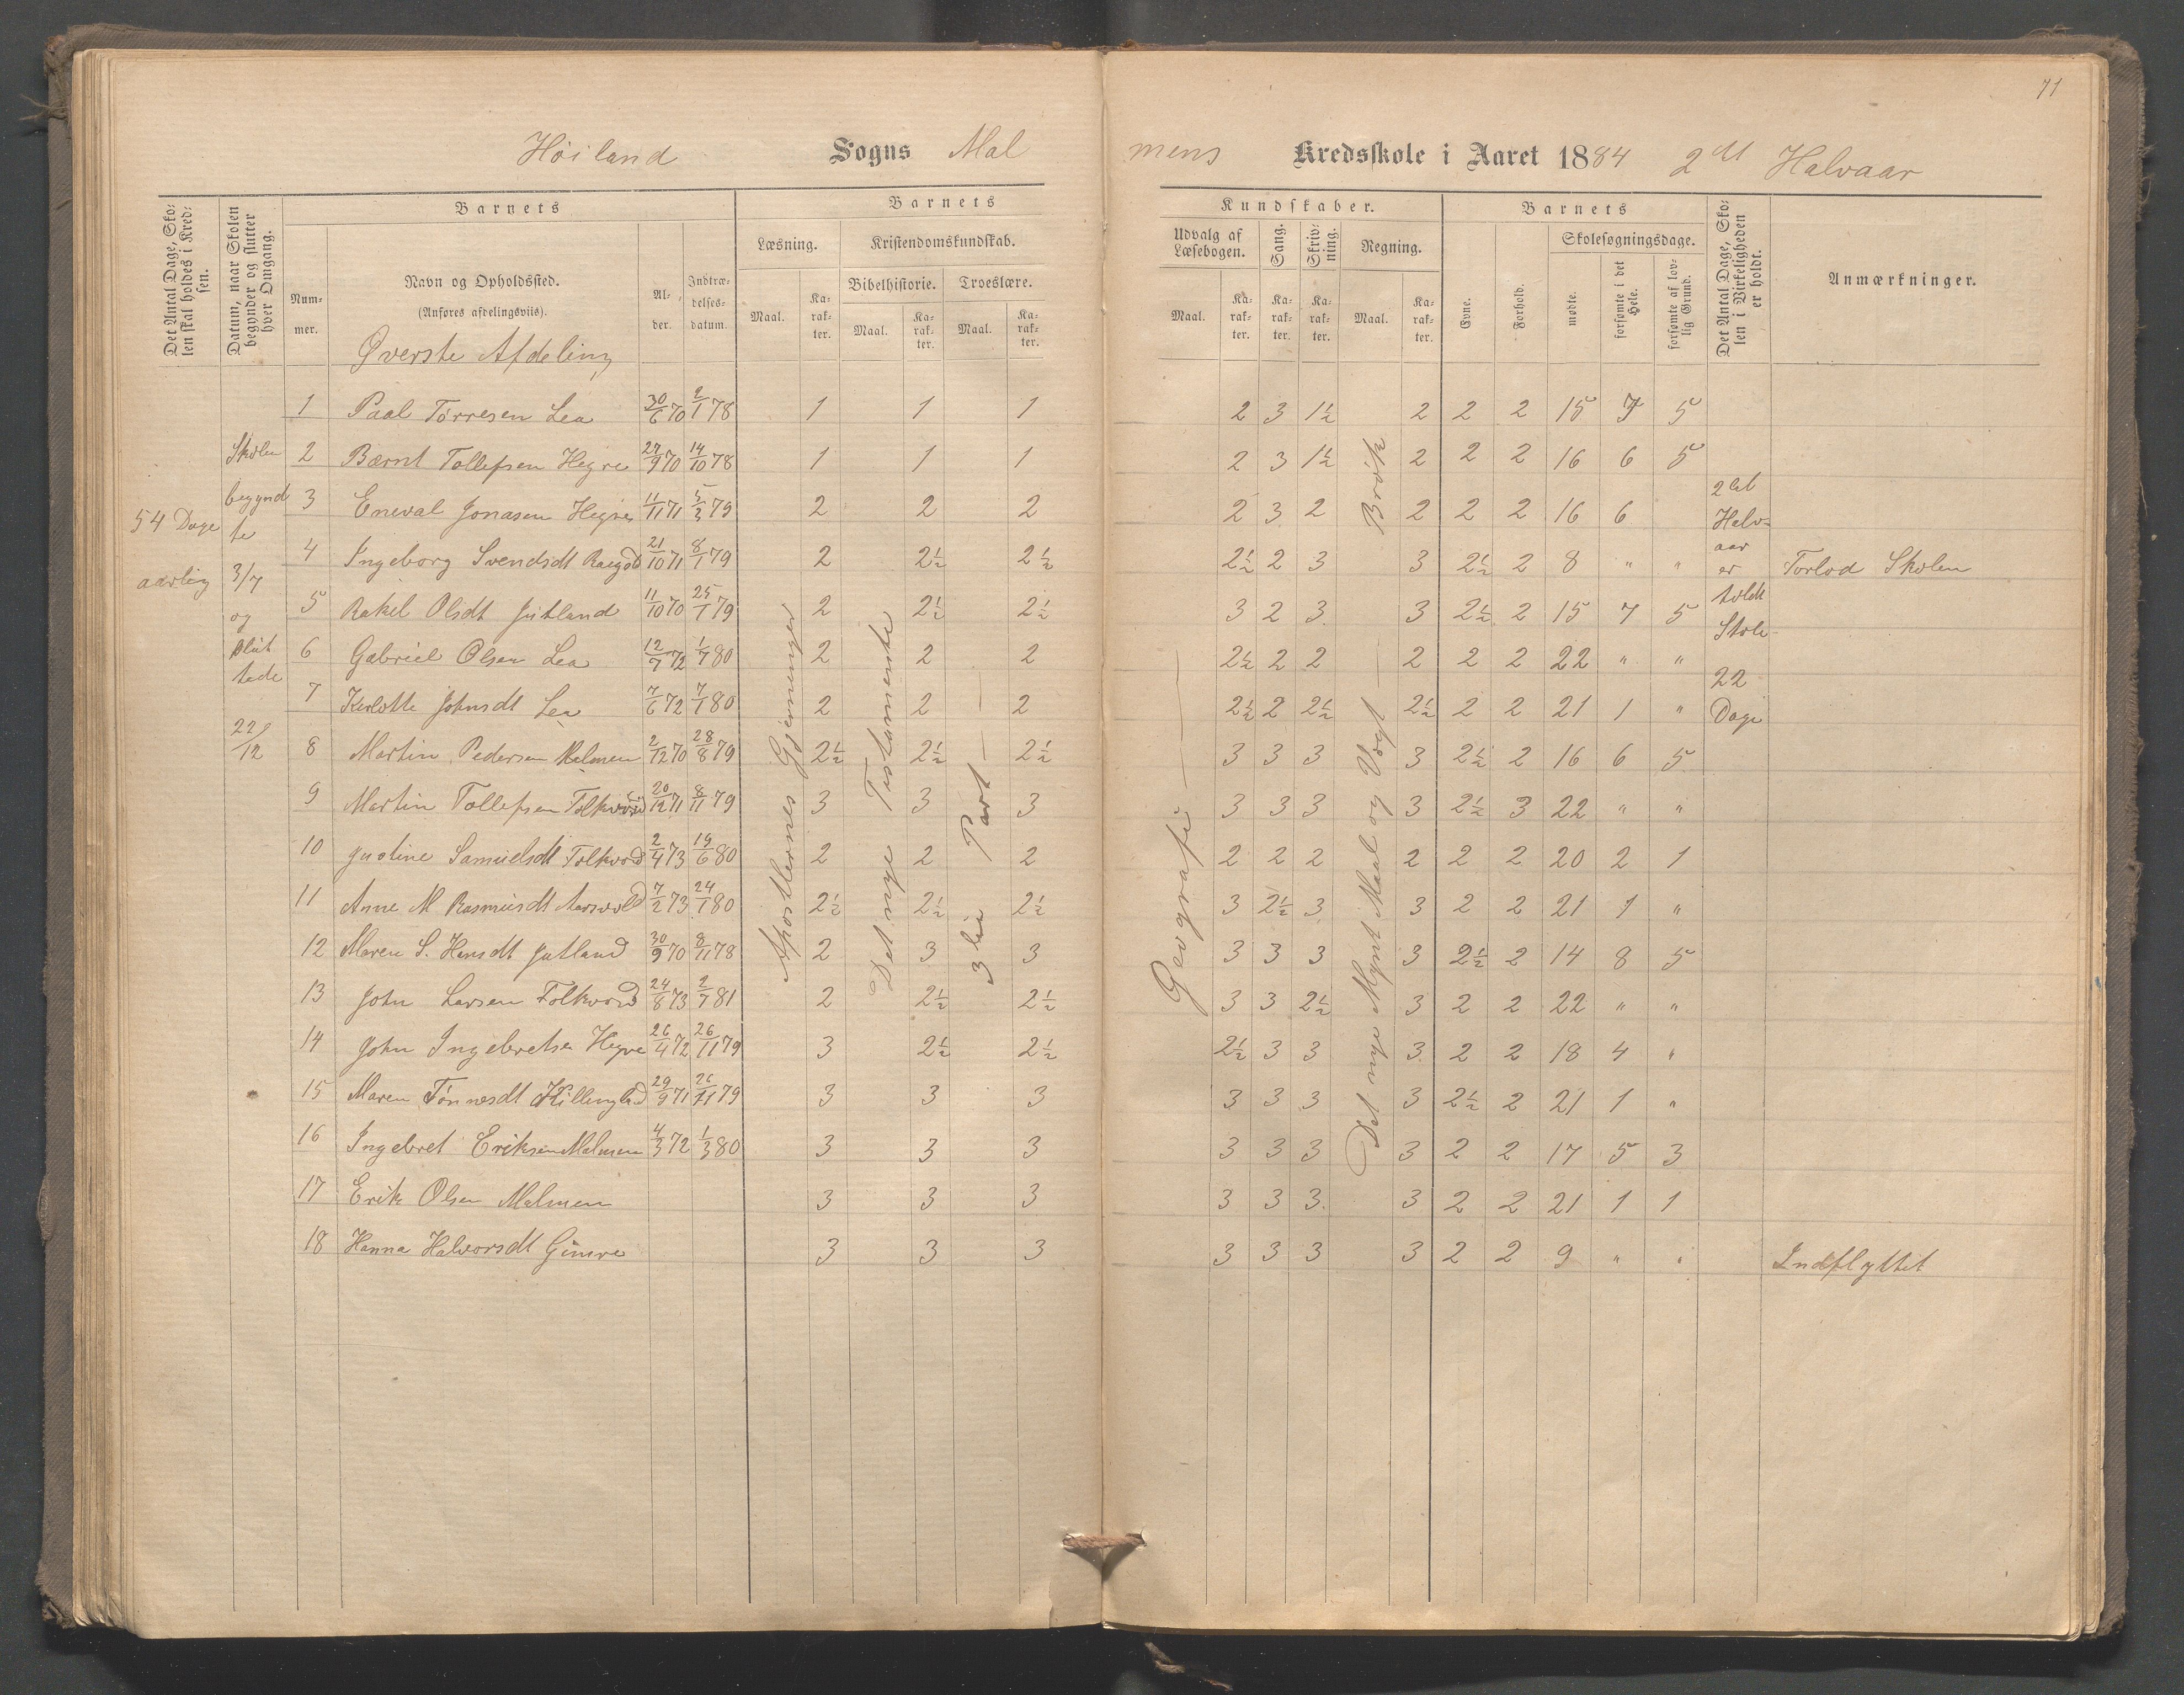 71
Höiland Sogns Mal mens Kredsskole i Aaret 1884 2det Halvaar
Det Antal Dage, Skolen skal holdes i Kredsen.
Datum, naar Skolen begynder og slutter hver Omgang.
Barnets
Barnets
Kundskaber.
Barnets
Det Antal Dage, Skolen i Virkeligheden er holdt.
Anmærkninger.
Nummer.
Navn og Opholdssted.
(Anføres afdelingsviis).
Alder.
Indtrædelsesdatum.
Læsning.
Kristendomskundskab.
Bibelhistorie.
Troeslære.
Udvalg af Læsebogen.
Sang.
Skrivning.
Regning.
Evne.
Forhold.
Skolesøgningsdage.
mødte.
forsømte i det Hele.
forsømte af lovlig Grund.
Maal. Karakter. Maal. Karakter. Maal. Karakter. Maal. Karakter. Karakter. Karakter. Maal. Karakter.
Øverste Afdeling
54 Dage aarlig
Skolen begyndte 3/7 og sluttede 22/12
Apostlernes Gjerninger
Det nye Testamente
3die Part
Geografi
Det nye Mynt Maal og Vægt Brøik
2det Halvaar er holdt Skole 22 Dage
1 Paal Tørresen Lea 30/6 70 2/1 78 1 1 1 2 3 1½ 2 2 2 15 7 5
2 Bærnt Tollefsen Hegre 27/9 70 14/10 78 1 1 1 2 3 1½ 2 2 2 16 6 5
3 Eneval Jonasen Hegre 11/11 71 5/3 79 2 2 2 2 3 2 2 2 2 16 6
4 Ingeborg Svendsdt 21/10 71 8/1 79 2 2½ 2½ 2½ 2 3 3 2½ 2 8 " " Forlod Skolen
5 Rakel Olsdt Jutland 11/10 70 25/1 79 2 2½ 2½ 3 2 3 3 2½ 2 15 7 5
6 Gabriel Olsen Lea 12/7 72 1/7 80 2 2 2 2½ 2 2 2 2 2 22 " "
7 Kerlotte Johnsdt Lea 7/6 72 7/1 80 2 2 2 2½ 2 2½ 2½ 2 2 21 1 "
8 Martin Pedersen Malmen 2/12 70 28/8 79 2½ 2½ 2½ 3 3 3 3 2½ 2 16 6 5
9 Martin Tollefsen Folkvord 20/12 71 8/11 79 3 3 3 3 3 3 3 2½ 3 22 " "
10 Justine Samuelsdt Folkvord 2/4 73 19/6 80 2 2 2 2 2 2 2 2 2 20 2 1
11 Anne M Rasmusdt Aarsvold 7/2 73 24/1 80 2½ 2½ 2½ 3 2½ 3 3 2 2 21 1 "
12 Maren S. Hansdt Jutland 30/9 70 8/11 78 2 3 3 3 3 3 3 2½ 2 14 8 5
13 John Larsen Folkvord 24/8 73 2/7 81 2 2½ 2½ 3 3 2½ 3 2 2 22 " "
14 John Ingebretsen Hegre 26/4 72 26/11 79 3 2½ 2½ 2½ 3 3 3 2 2 18 4 "
15 Maren Tønnesdt Killingland 29/9 71 26/11 79 3 3 3 3 3 3 3 2½ 2 21 1 "
16 Ingebret Eriksen Malmen 4/3 72 1/3 80 3 3 3 3 3 3 3 2 2 17 5 3
17 Erik Olsen Malmen 3 3 3 3 3 3 3 2 2 21 1 1
18 Hanna Halvorsdt Gimre 3 3 3 3 3 3 3 2 2 9 " " Indflyttet